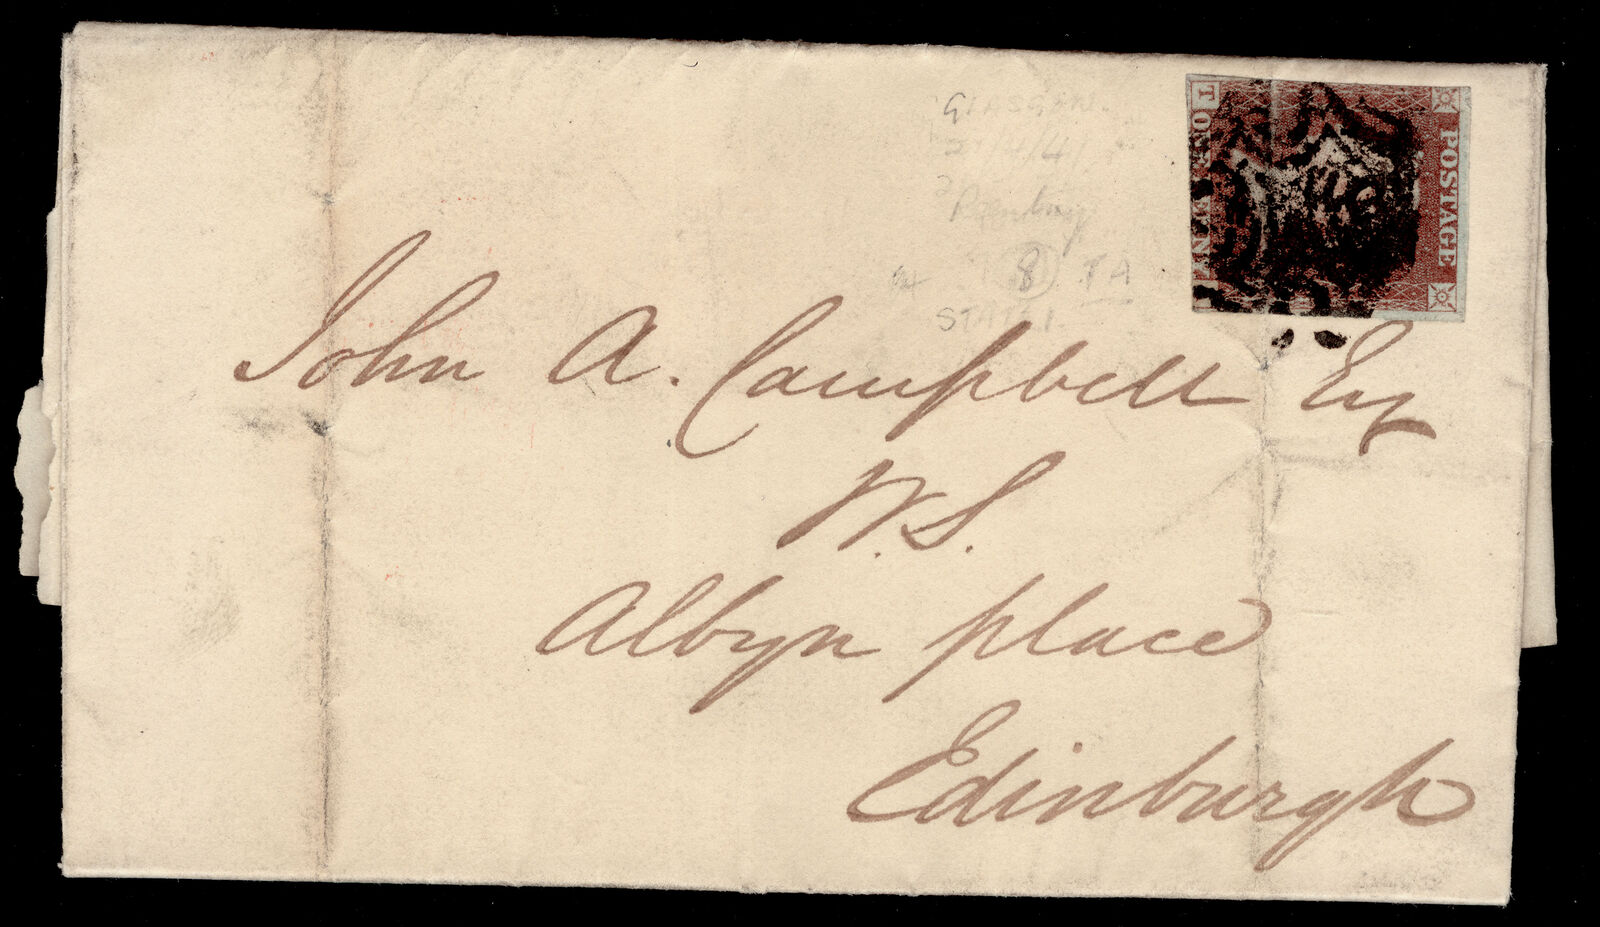 GLASGOW
8 TA
STATE 1
POSTAGE
T
ONE PENNY
John A. Campbell Esq
W.S.
Albyn place
Edinburgh